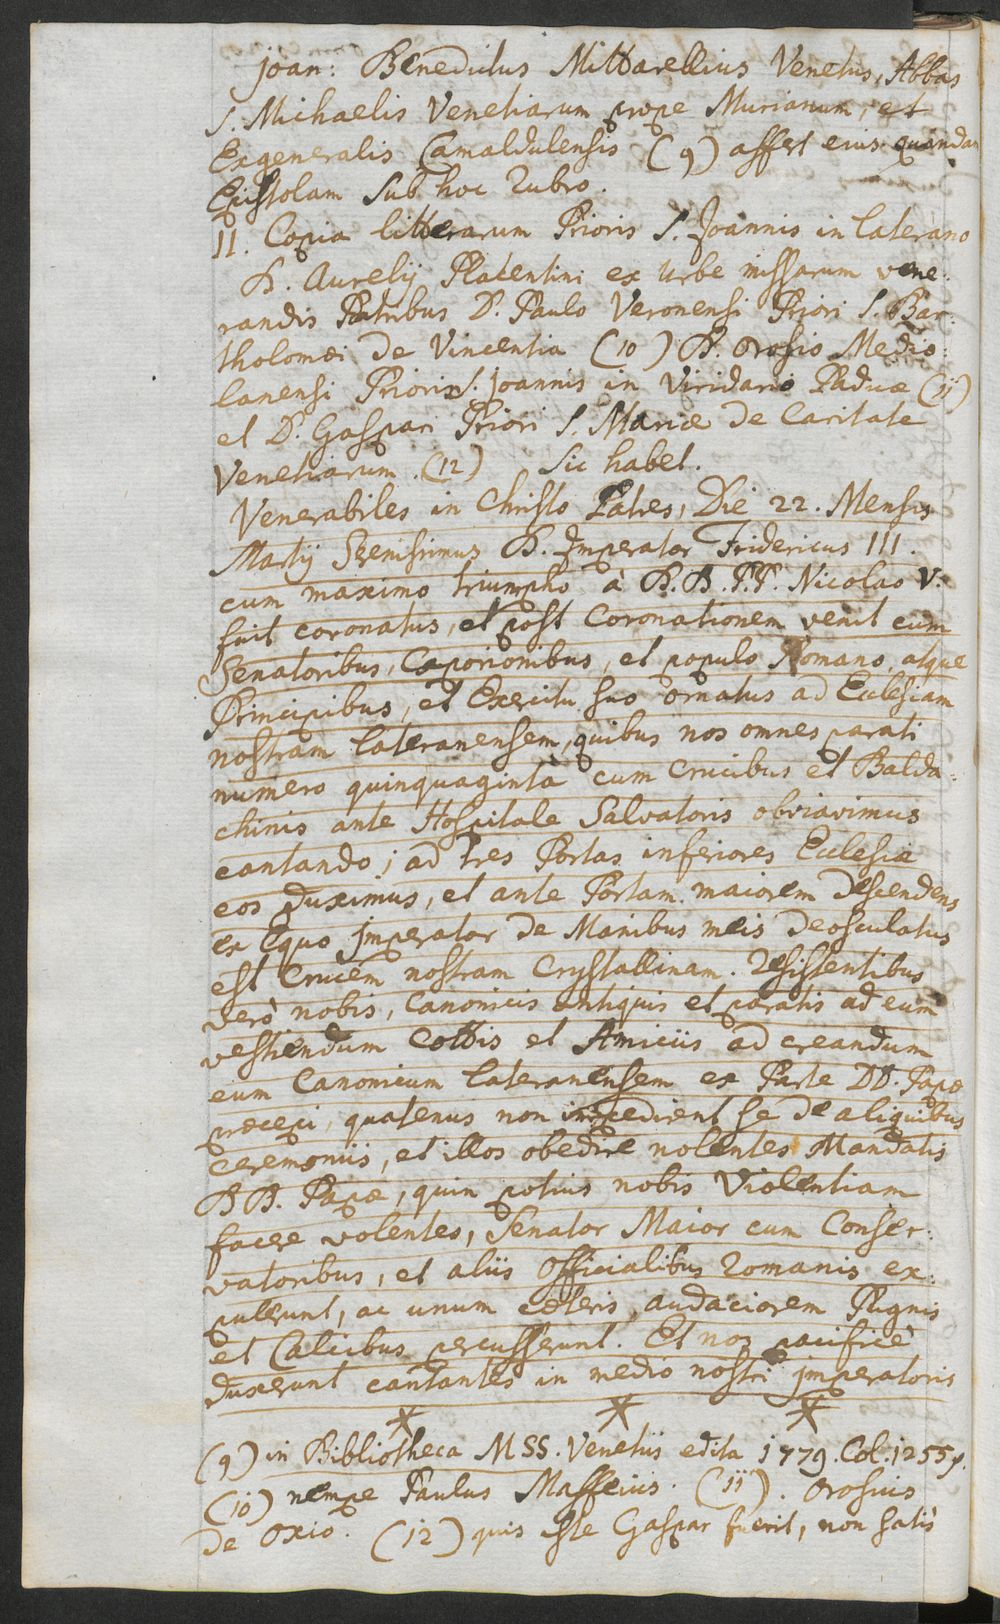 Joan: Benedictus Mittarellius Venetus, Abbas
S. Michaelis Venetiarum prope Murianum, et
Exgeneralis Camaldulensis (9) affert eius quandam
Epistolam sub hoc Rubro.
II. Copia litterarum Prioris S. Joannis in Laterano
D. Aurelij Placentini ex Urbe missarum vene:
randis Patribus D. Paulo Veronensi Priori S. Bar:
tholomæi de Vincentia (10) D. Orosio Medio:
lanensi Prioris S. Joannis in Viridario Paduæ (11)
et D. Gaspari Priori S. Mariæ de Caritate
Venetiarum. (12) Sic habet.
Venerabiles in Christo Patres, Die 22. Mensis
Martij Serenissimus D. Imperator Fridericus III.
cum maximo triumpho à D.D.P.P. Nicolao V.
fuit coronatus, et post Coronationem venit cum
Senatoribus, Caporionibus, et populo Romano, atque
Principibus, et Exercitu suo ornatus ad Ecclesiam
nostram Lateranensem, quibus nos omnes parati
numero quinquaginta cum Crucibus et Balda:
chinis ante Hospitale Salvatoris obviavimus
cantando; ad tres Portas inferiores Ecclesiæ
eos duximus, et ante Portam maiorem descendens
ex Equo Imperator de Manibus meis deosculatus
est Crucem nostram Crystallinam. Resistentibus
verò nobis, Canonicis antiquis et paratis ad eum
vestiendum Cottis et Amiciis ad creandum
eum Canonicum Lateranensem ex Parte DD. Papæ
præcepi, quatenus non impedirent se de aliquibus
ceremoniis, et illos obedire nolentes Mandatis
D D. Papæ, quin potius nobis Violentiam
facere volentes, Senator Maior cum Conser:
vatoribus, et aliis Officialibus Romanis ex:
pulerunt, ac unum cæteris audaciorem Pugnis
et Calcibus percusserunt. Et nos pacificè
duxerunt cantantes in medio nostri Imperatoris
(9) in Bibliotheca MSS. Venetiis edita 1779. Col. 1255.
(10) nempe Paulus Maffeius. (11). Orosius
de Oxio. (12) quis iste Gaspar fuerit, non satis